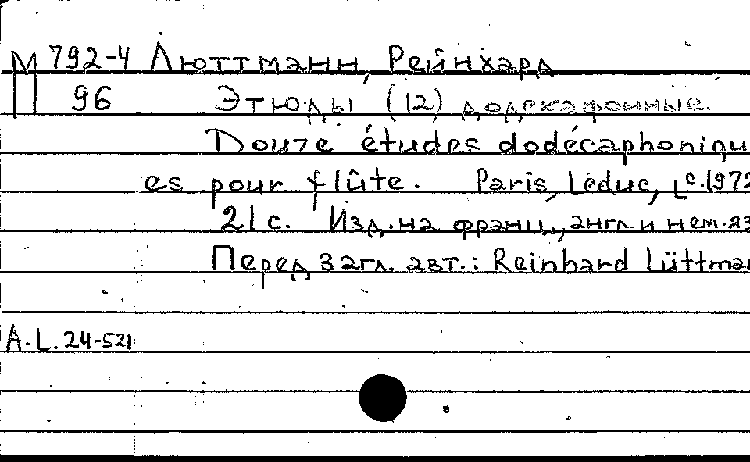 М 792-4 Люттманн, Рейнхард
П 96 Этюды (12) додекафонные.
Douze études dodécaphoniqu
es pour flûte. Paris, Leduc, c.1972
21 с. Изд. на франц., англ. и нем. яз
Перед загл. авт.: Reinhard Lüttman
A.L. 24-521